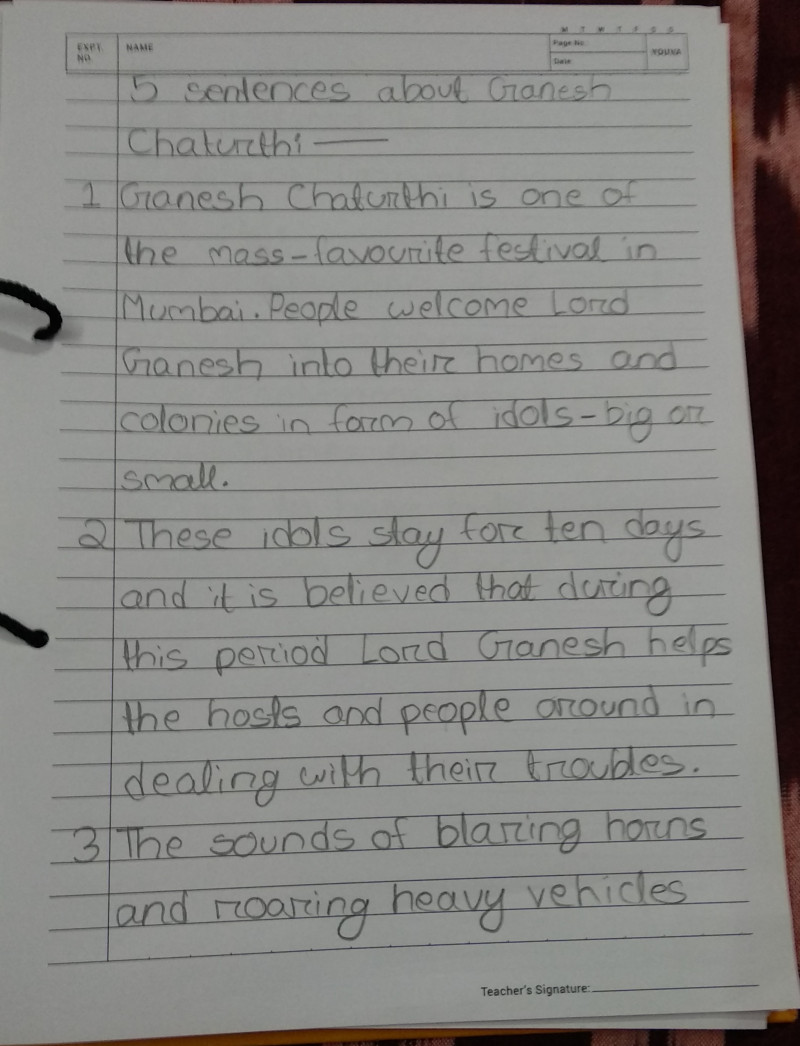 M T W T F S S
EXPT. NO. NAME Page No.: YOUVA
Date:
5 sentences about Ganesh
Chaturthi —
1 Ganesh Chaturthi is one of
the mass-favourite festival in
Mumbai. People welcome Lord
Ganesh into their homes and
colonies in form of idols-big or
small.
2 These idols stay for ten days
and it is believed that during
this period Lord Ganesh helps
the hosts and people around in
dealing with their troubles.
3 The sounds of blaring horns
and roaring heavy vehicles
Teacher's Signature: